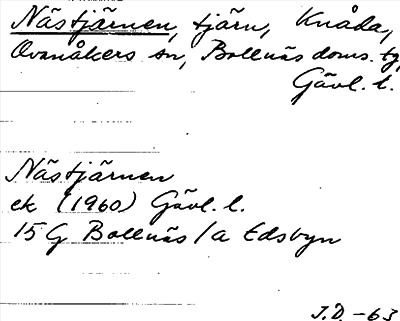 Nästjärnen, tjärn, Knåda,
Ovanåkers sn, Bollnäs doms. tg,
Gävl. l.
Nästjärnen
ek (1960) Gävl. l.
15 G Bollnäs/a Edsbyn
J.D. -63